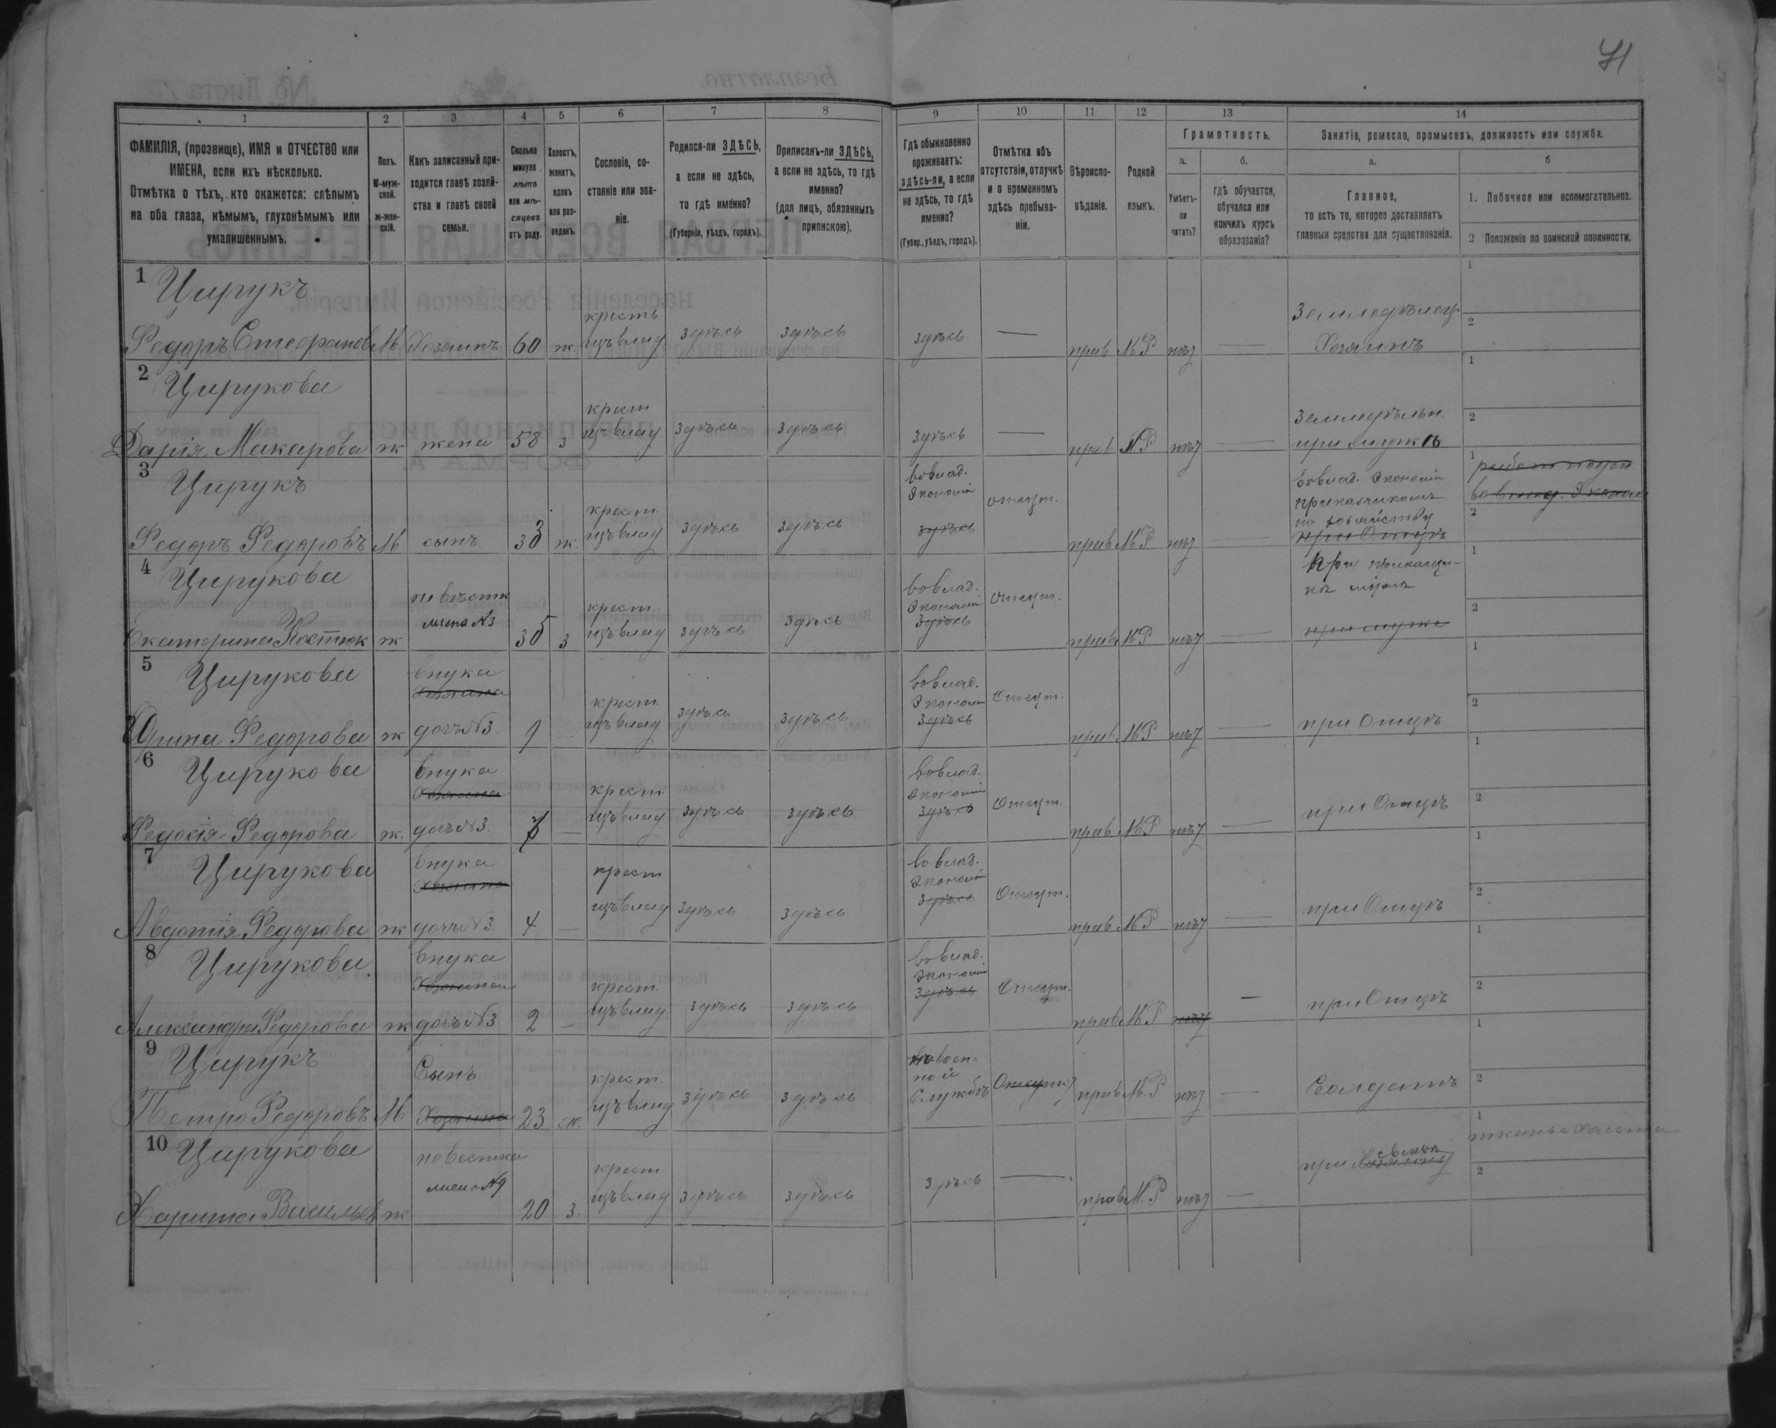 71
1 2 3 4 5 6 7 8 9 10 11 12 13 14
ФАМИЛІЯ, (прозвище), ИМЯ и ОТЧЕСТВО или ИМЕНА, если ихъ нѣсколько.
Отмѣтка о тѣхъ, кто окажется: слѣпымъ на оба глаза, нѣмымъ, глухонѣмымъ или умалишеннымъ.
Полъ. М-мужской. ж-женскій.
Какъ записанный приходится главѣ хозяйства и главѣ своей семьи.
Сколько минуло лѣтъ или мѣсяцевъ отъ роду.
Холостъ, женатъ, вдовъ или разведенъ.
Сословіе, состояніе или званіе.
Родился-ли ЗДѢСЬ, а если не здѣсь, то гдѣ именно?
(Губернія, уѣздъ, городъ).
Приписанъ-ли ЗДѢСЬ, а если не здѣсь, то гдѣ именно?
(для лицъ, обязанныхъ припискою).
Гдѣ обыкновенно проживаетъ: здѣсь-ли, а если не здѣсь, то гдѣ именно?
(Губер., уѣздъ, городъ).
Отмѣтка объ отсутствіи, отлучкѣ и о временномъ здѣсь пребываніи.
Вѣроисповѣданіе.
Родной языкъ.
Грамотность.
а. Умѣетъ-ли читать?
б. гдѣ обучается, обучался или кончилъ курсъ образованія?
Занятія, ремесло, промыселъ, должность или служба.
а. Главное, то есть то, которое доставляетъ главныя средства для существованія.
б
1. Побочное или вспомогательное.
2 Положеніе по воинской повинности.
1 Цирукъ
Федоръ Стефановъ М. Хозяинъ 60 ж. крестъ изъ влад здѣсь здѣсь здѣсь — прав М Р нѣт — Земледѣлец Хозяинъ 1 2
2 Цирукова
Дарія Макарова ж жена 58 з крест изъ влад. здѣсь здѣсь здѣсь — прав М Р нѣт — Земледѣльч. при мужѣ 1 2
3 Цирукъ
Федоръ Федоровъ М сынъ 38 ж. крест изъ влад здѣсь здѣсь во влад. Экономіи здѣсь отсут. прав М Р нѣт — во влад. Экономіи приказчикомъ при Отцѣ 1 2
4 Цирукова
Екатерина Костюк ж невѣстк жена №3 35 з крест. изъ влад здѣсь здѣсь во влад. Экономіи здѣсь Отсут. прав М Р нѣт — при мужѣ 1 2
5 Цирукова
Федорова ж внука Хозяина дочь №3 9 — крест изъ влад здѣсь здѣсь во влад. Экономіи здѣсь Отсут. прав М Р нѣт — при Отцѣ 1 2
6 Цирукова
Федосія Федорова ж. внука Хозяина дочь №3 — крест изъ влад здѣсь здѣсь во влад. Экономіи здѣсь Отсут. прав М Р нѣт — при Отцѣ 1 2
7 Цирукова
Авдотія Федорова ж внука Хозяина дочь №3 4 — крест изъ влад здѣсь здѣсь во влад. Экономіи здѣсь Отсут. прав М Р нѣт — при Отцѣ 1 2
8 Цирукова
Александра Федорова ж внука Хозяина дочь №3 2 — крест. изъ влад здѣсь здѣсь во влад. Экономіи здѣсь Отсут. прав М Р нѣт — при Отцѣ 1 2
9 Цирукъ
Петро Федоровъ М Сынъ Хозяина 23 ж. крест. изъ влад здѣсь здѣсь на воен- ной Службѣ Отсут прав М. Р нѣт — Солдатъ 1 2
10 Цирукова
Харитина Васильев ж невестка жена №9 20 з. крест изъ влад здѣсь здѣсь здѣсь — прав М. Р нѣт — при 1 2